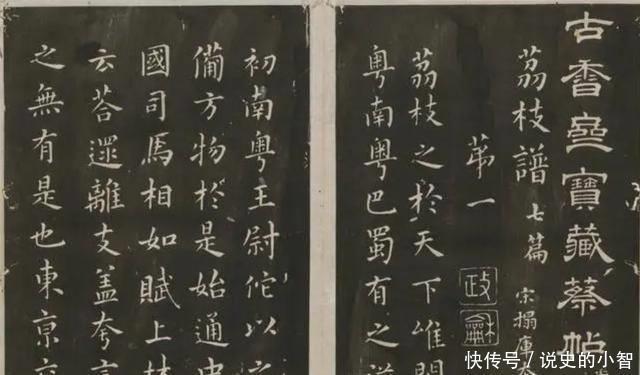 古香齋寶藏蔡帖
宋搨庫
茘枝譜 七篇
苐一
政龢
茘枝之於天下唯閩
粵南粵巴蜀有之
初南粵王尉佗以之
備方物於是始通中
國司馬相如賦上林
云荅遝離支蓋夸言
之無有是也東京交
快传号/说史的小智